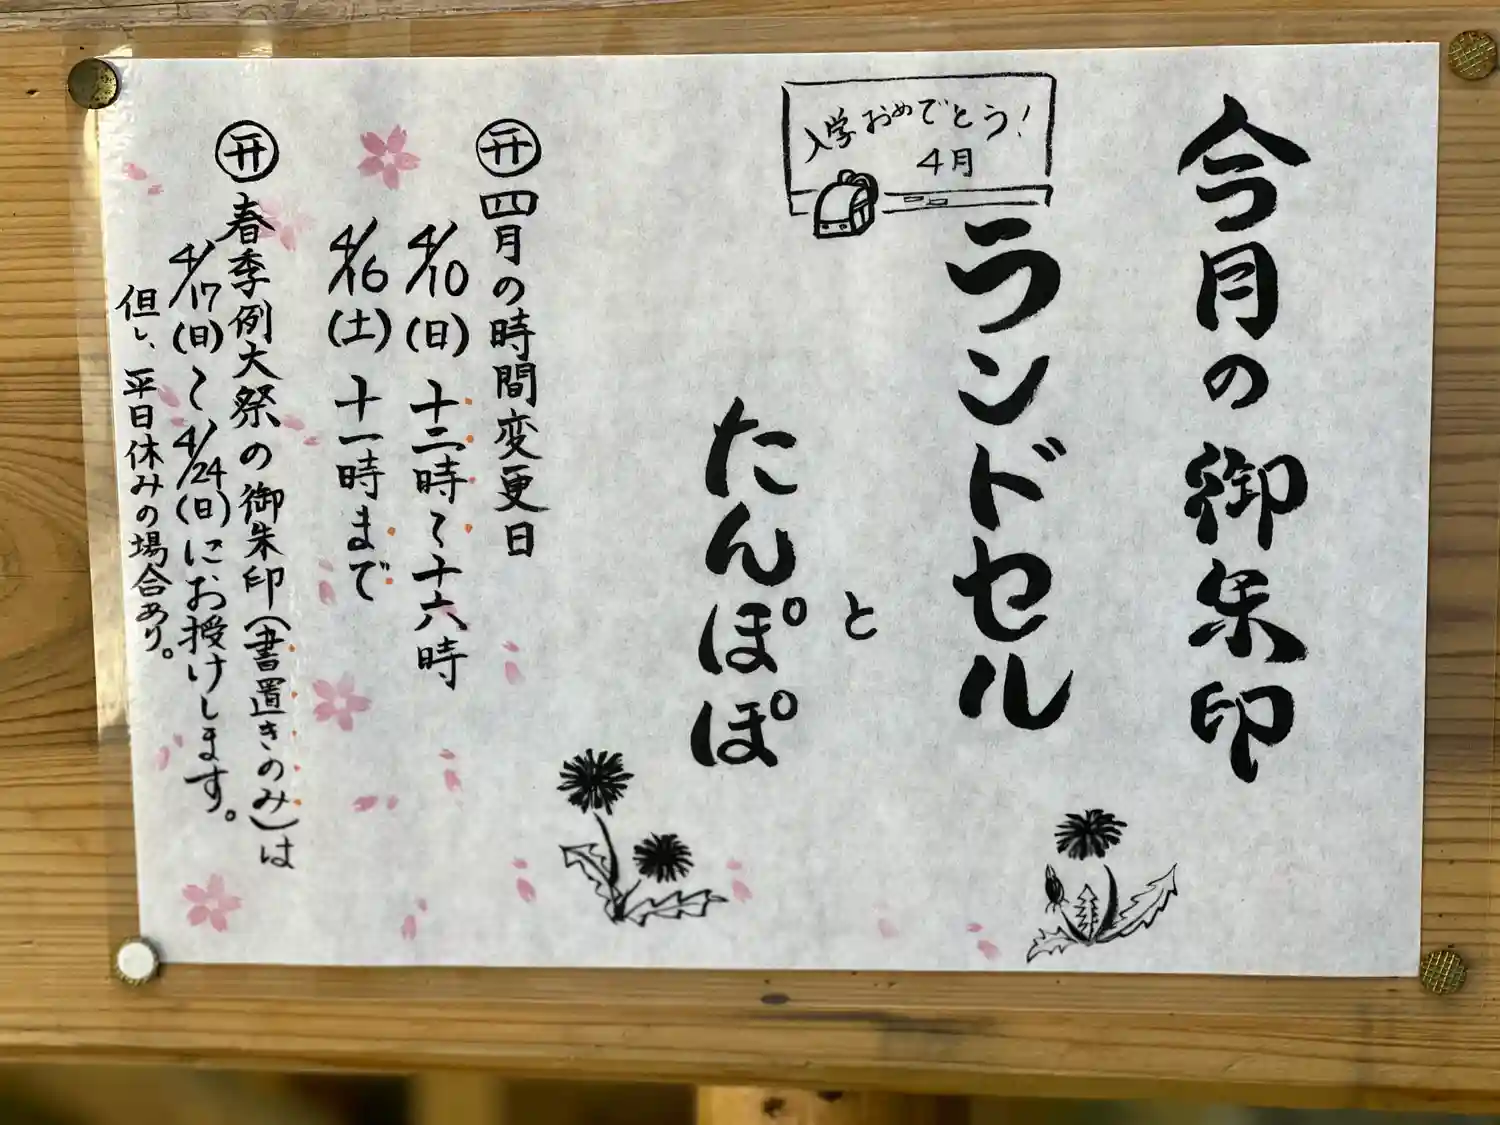 今月の御朱印
入学おめでとう!
4月
ランドセル
と
たんぽぽ
四月の時間変更日
4/10(日)十二時~十六時
4/16(土)十一時まで
春季例大祭の御朱印(書置きのみ)は
4/17(日)~4/24(日)にお授けします。
但し、平日休みの場合あり。